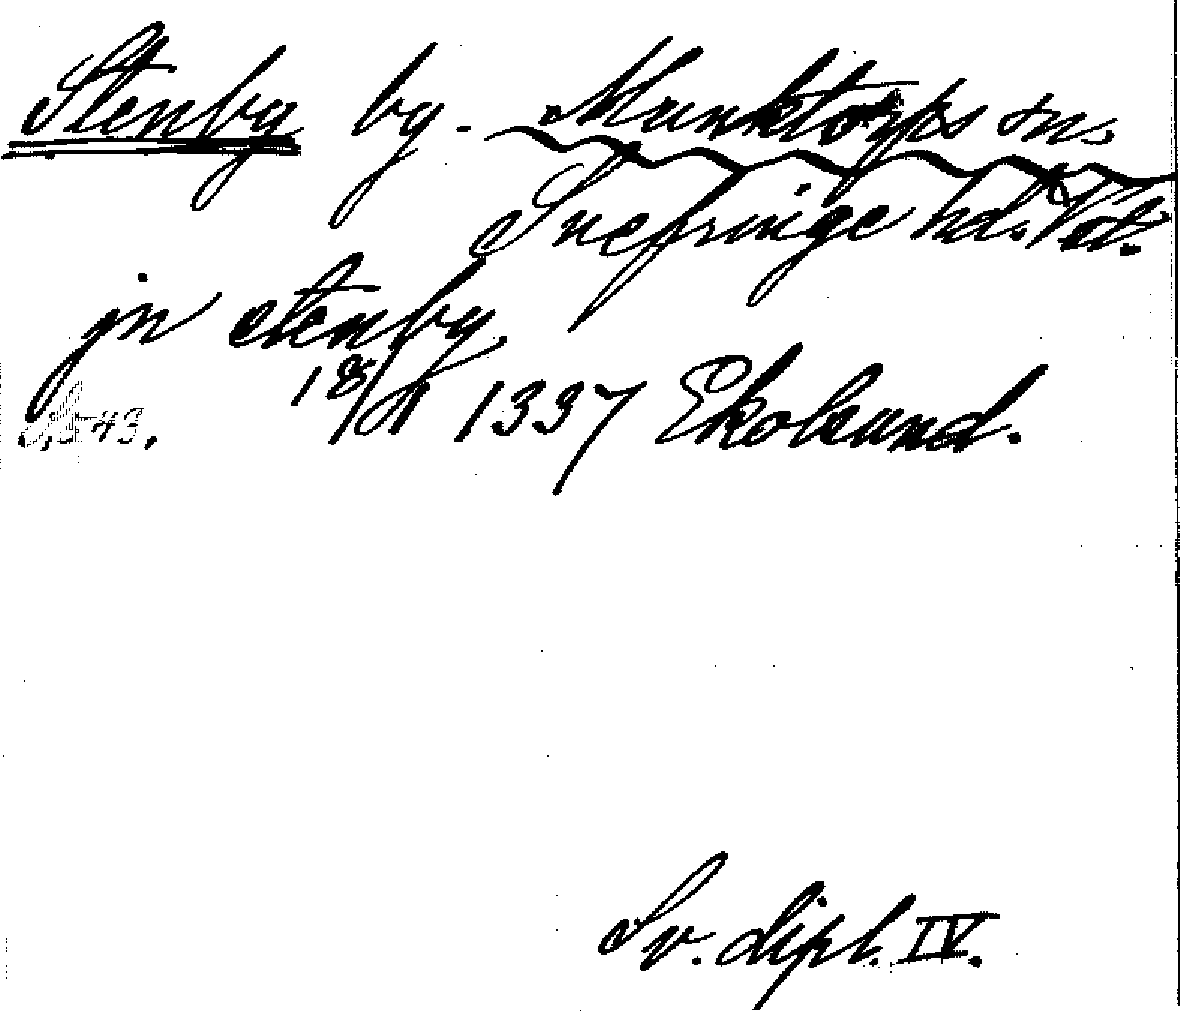 Stenby by. Munktorps sn.
Snefringe hd. Vstl.
jn stenby
18/11 1337 Ekolsund.
S. 543.
Sv. dipl. IV.